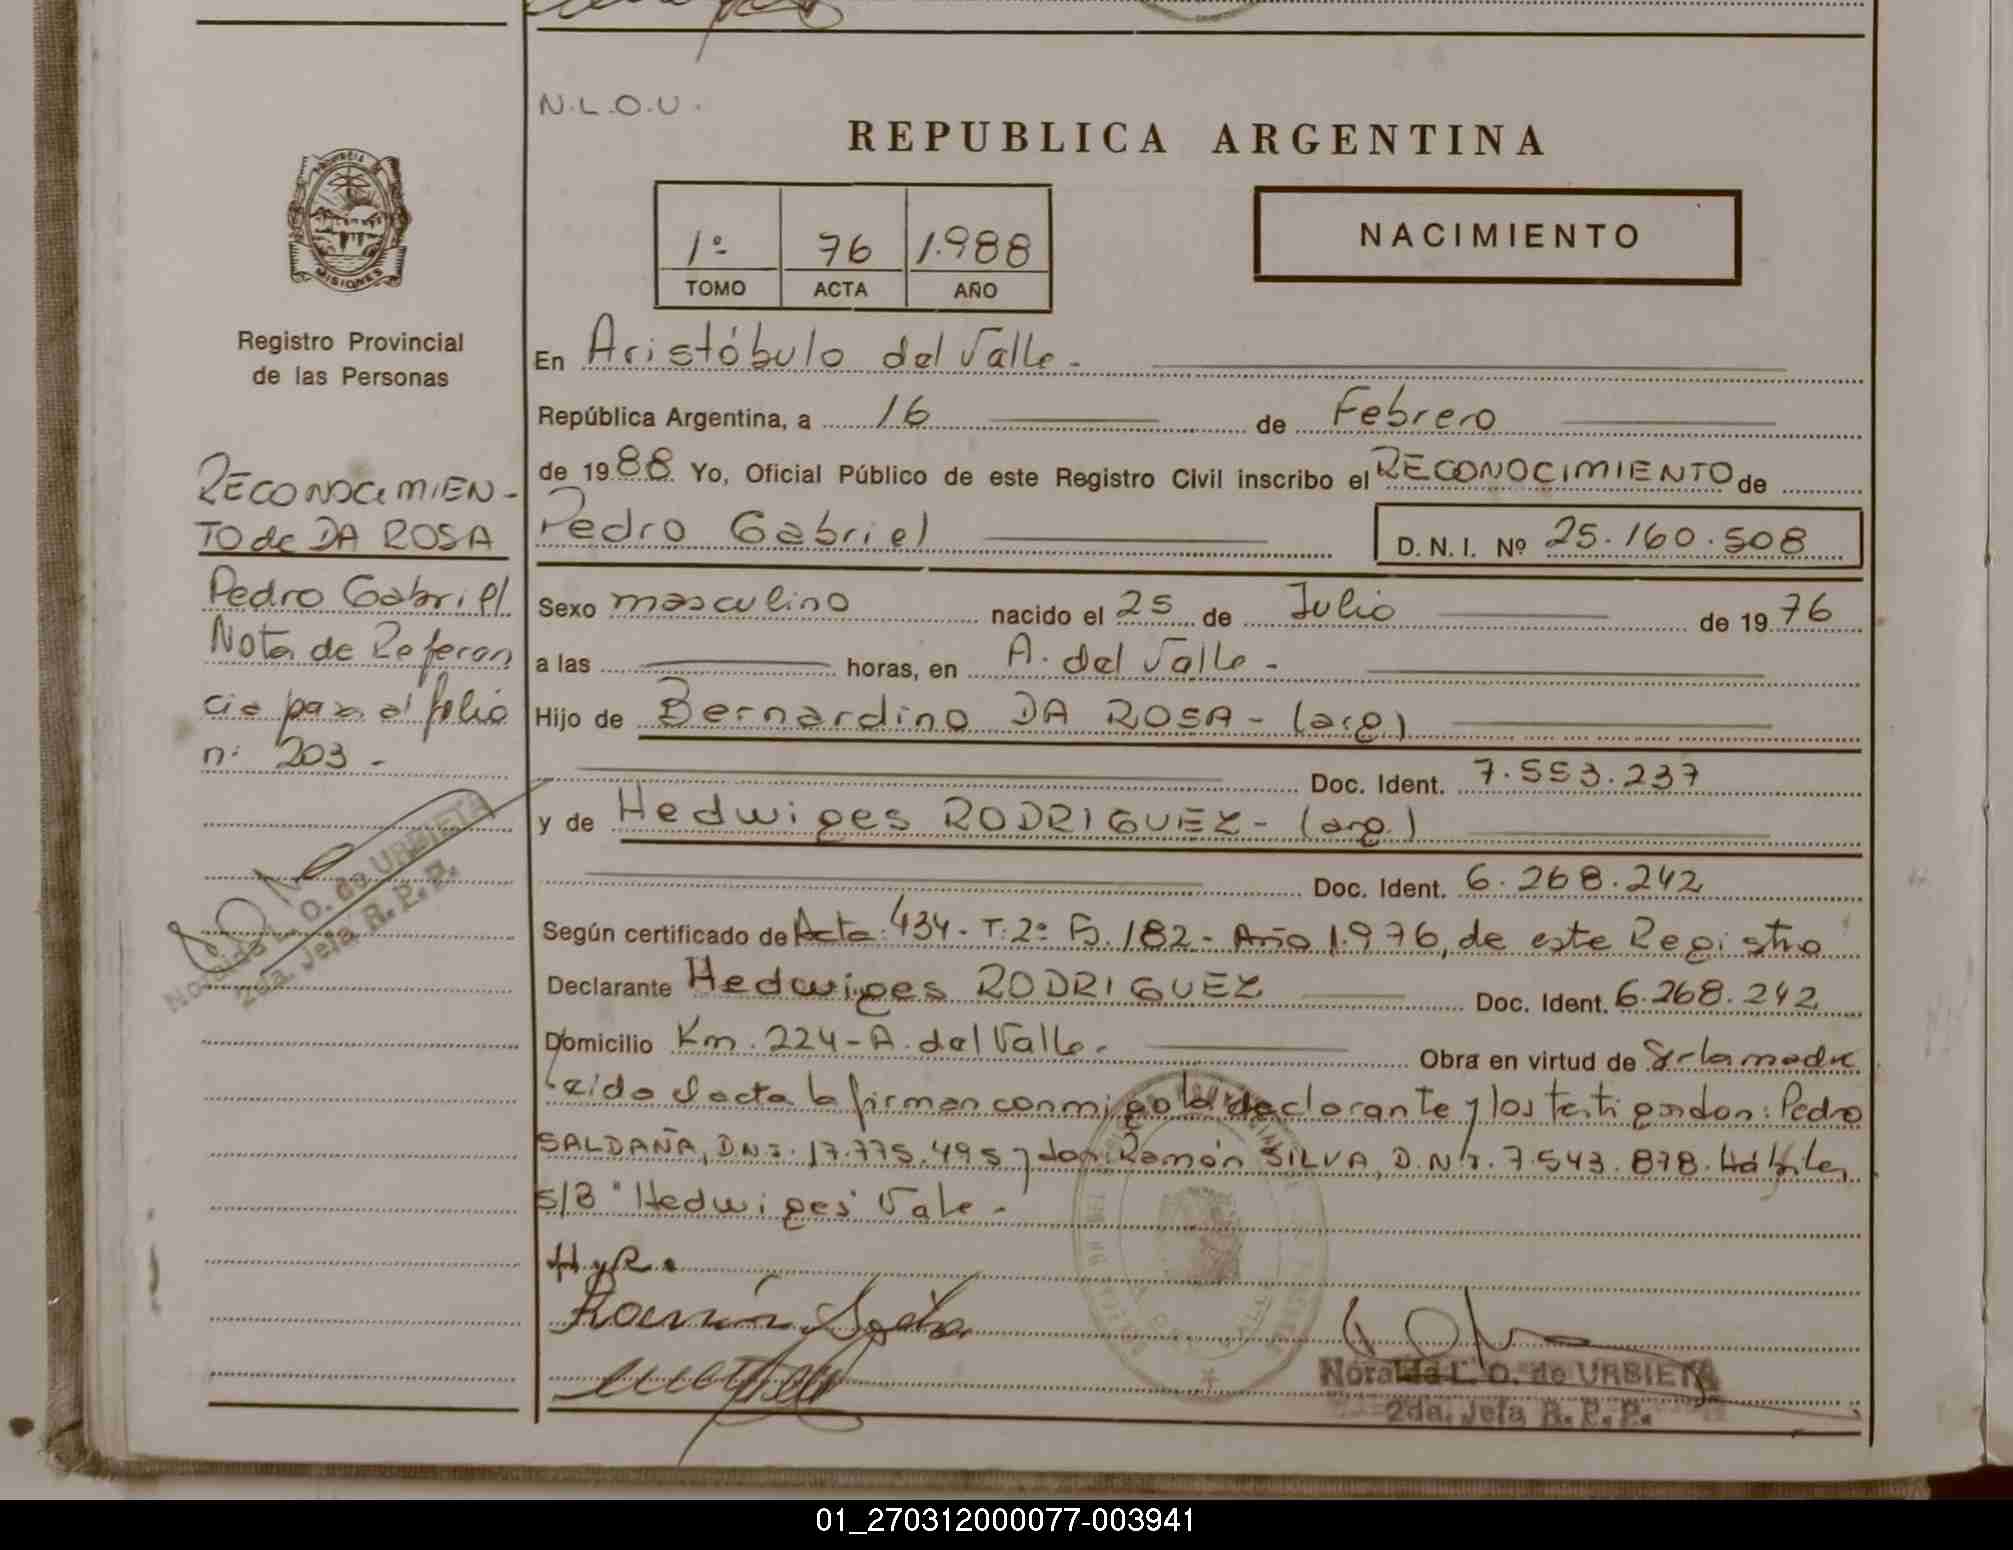 N.L.O.U.
REPUBLICA ARGENTINA
1º 76 1.988
TOMO ACTA AÑO
NACIMIENTO
MISIONES
Registro Provincial
de las Personas
RECONOCIMIEN-
TO de DA ROSA
Pedro Gabriel
Nota de Referen
cia pasa al folio
nº 203 -
Noralda L. O. de URBIETA
2da. Jefa R. P. P.
En Aristóbulo del Valle -
República Argentina, a 16 de Febrero
de 1988 Yo, Oficial Público de este Registro Civil inscribo el RECONOCIMIENTO de
Pedro Gabriel D. N. I. Nº 25.160.508
Sexo masculino nacido el 25 de Julio de 1976
a las horas, en A. del Valle -
Hijo de Bernardino DA ROSA - (arg)
Doc. Ident. 7.553.237
y de Hedwiges RODRIGUEZ - (arg.)
Doc. Ident. 6.268.242
Según certificado de Acta: 434 - T: 2º F. 182 - Año 1.976, de este Registro
Declarante Hedwiges RODRIGUEZ Doc. Ident. 6.268.242
Domicilio Km. 224 - A. del Valle. Obra en virtud de Ser la madre
Leida el acta la firman conmigo la declarante y los testigos don: Pedro
SALDAÑA, D.N.I. 17.775.495 y don Ramón SILVA, D.N.I. 7.543.878. Hábiles
S/B "Hedwiges" Vale -
H. y R.
Ramón Silva
Noralda L. O. de URBIETA
2da. Jefa R. P. P.
01_270312000077-003941